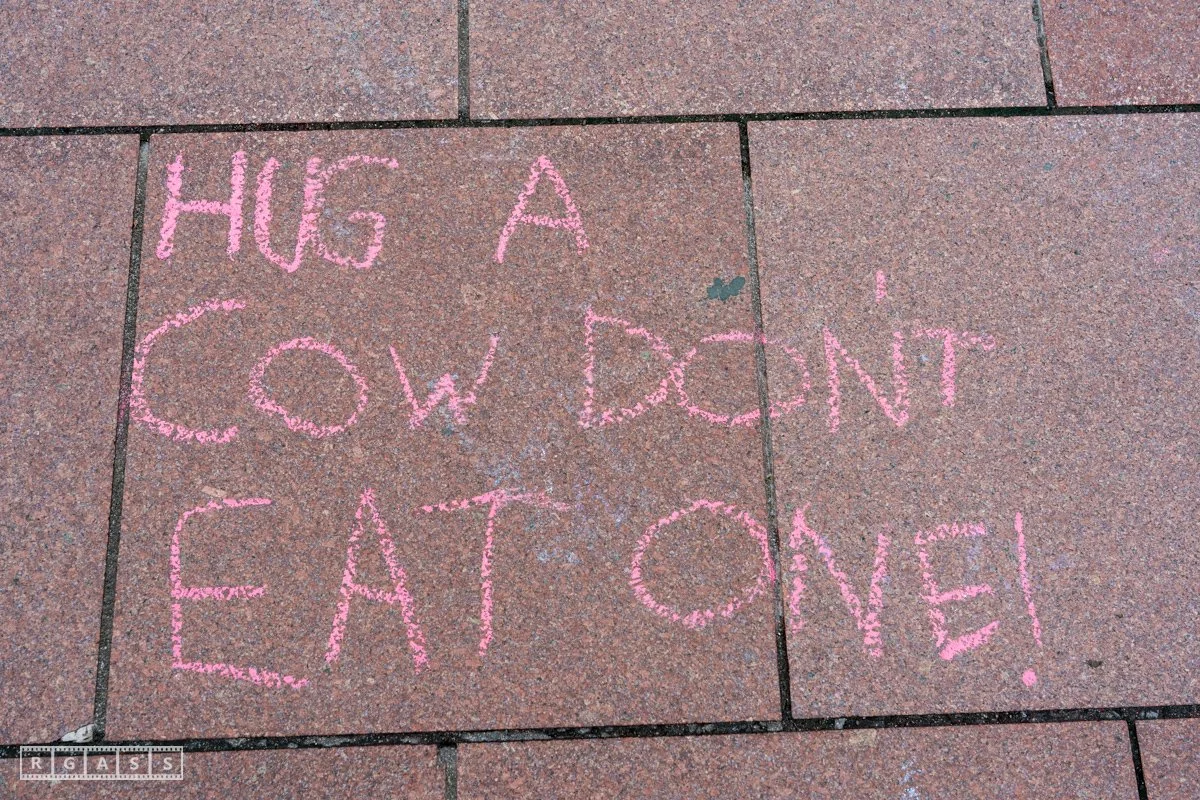 HUG A
COW DON'T
EAT ONE!
RGASS